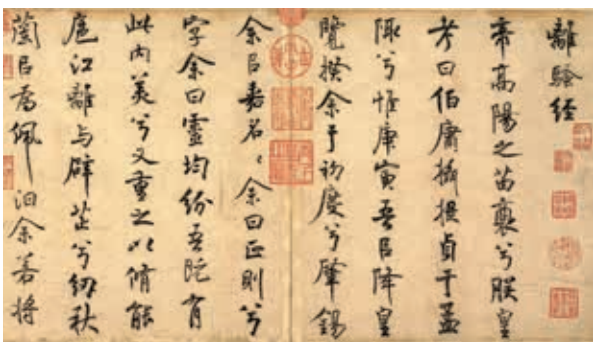 離騷經
帝高陽之苗裔兮朕皇
考曰伯庸攝提貞于孟
陬兮惟庚寅吾㠯降皇
覽揆余于初度兮肇錫
余㠯嘉名〻余曰正則兮
字余曰靈均紛吾既有
此內美兮又重之以脩能
扈江離与辟芷兮紉秋
蘭㠯為佩汩余若將